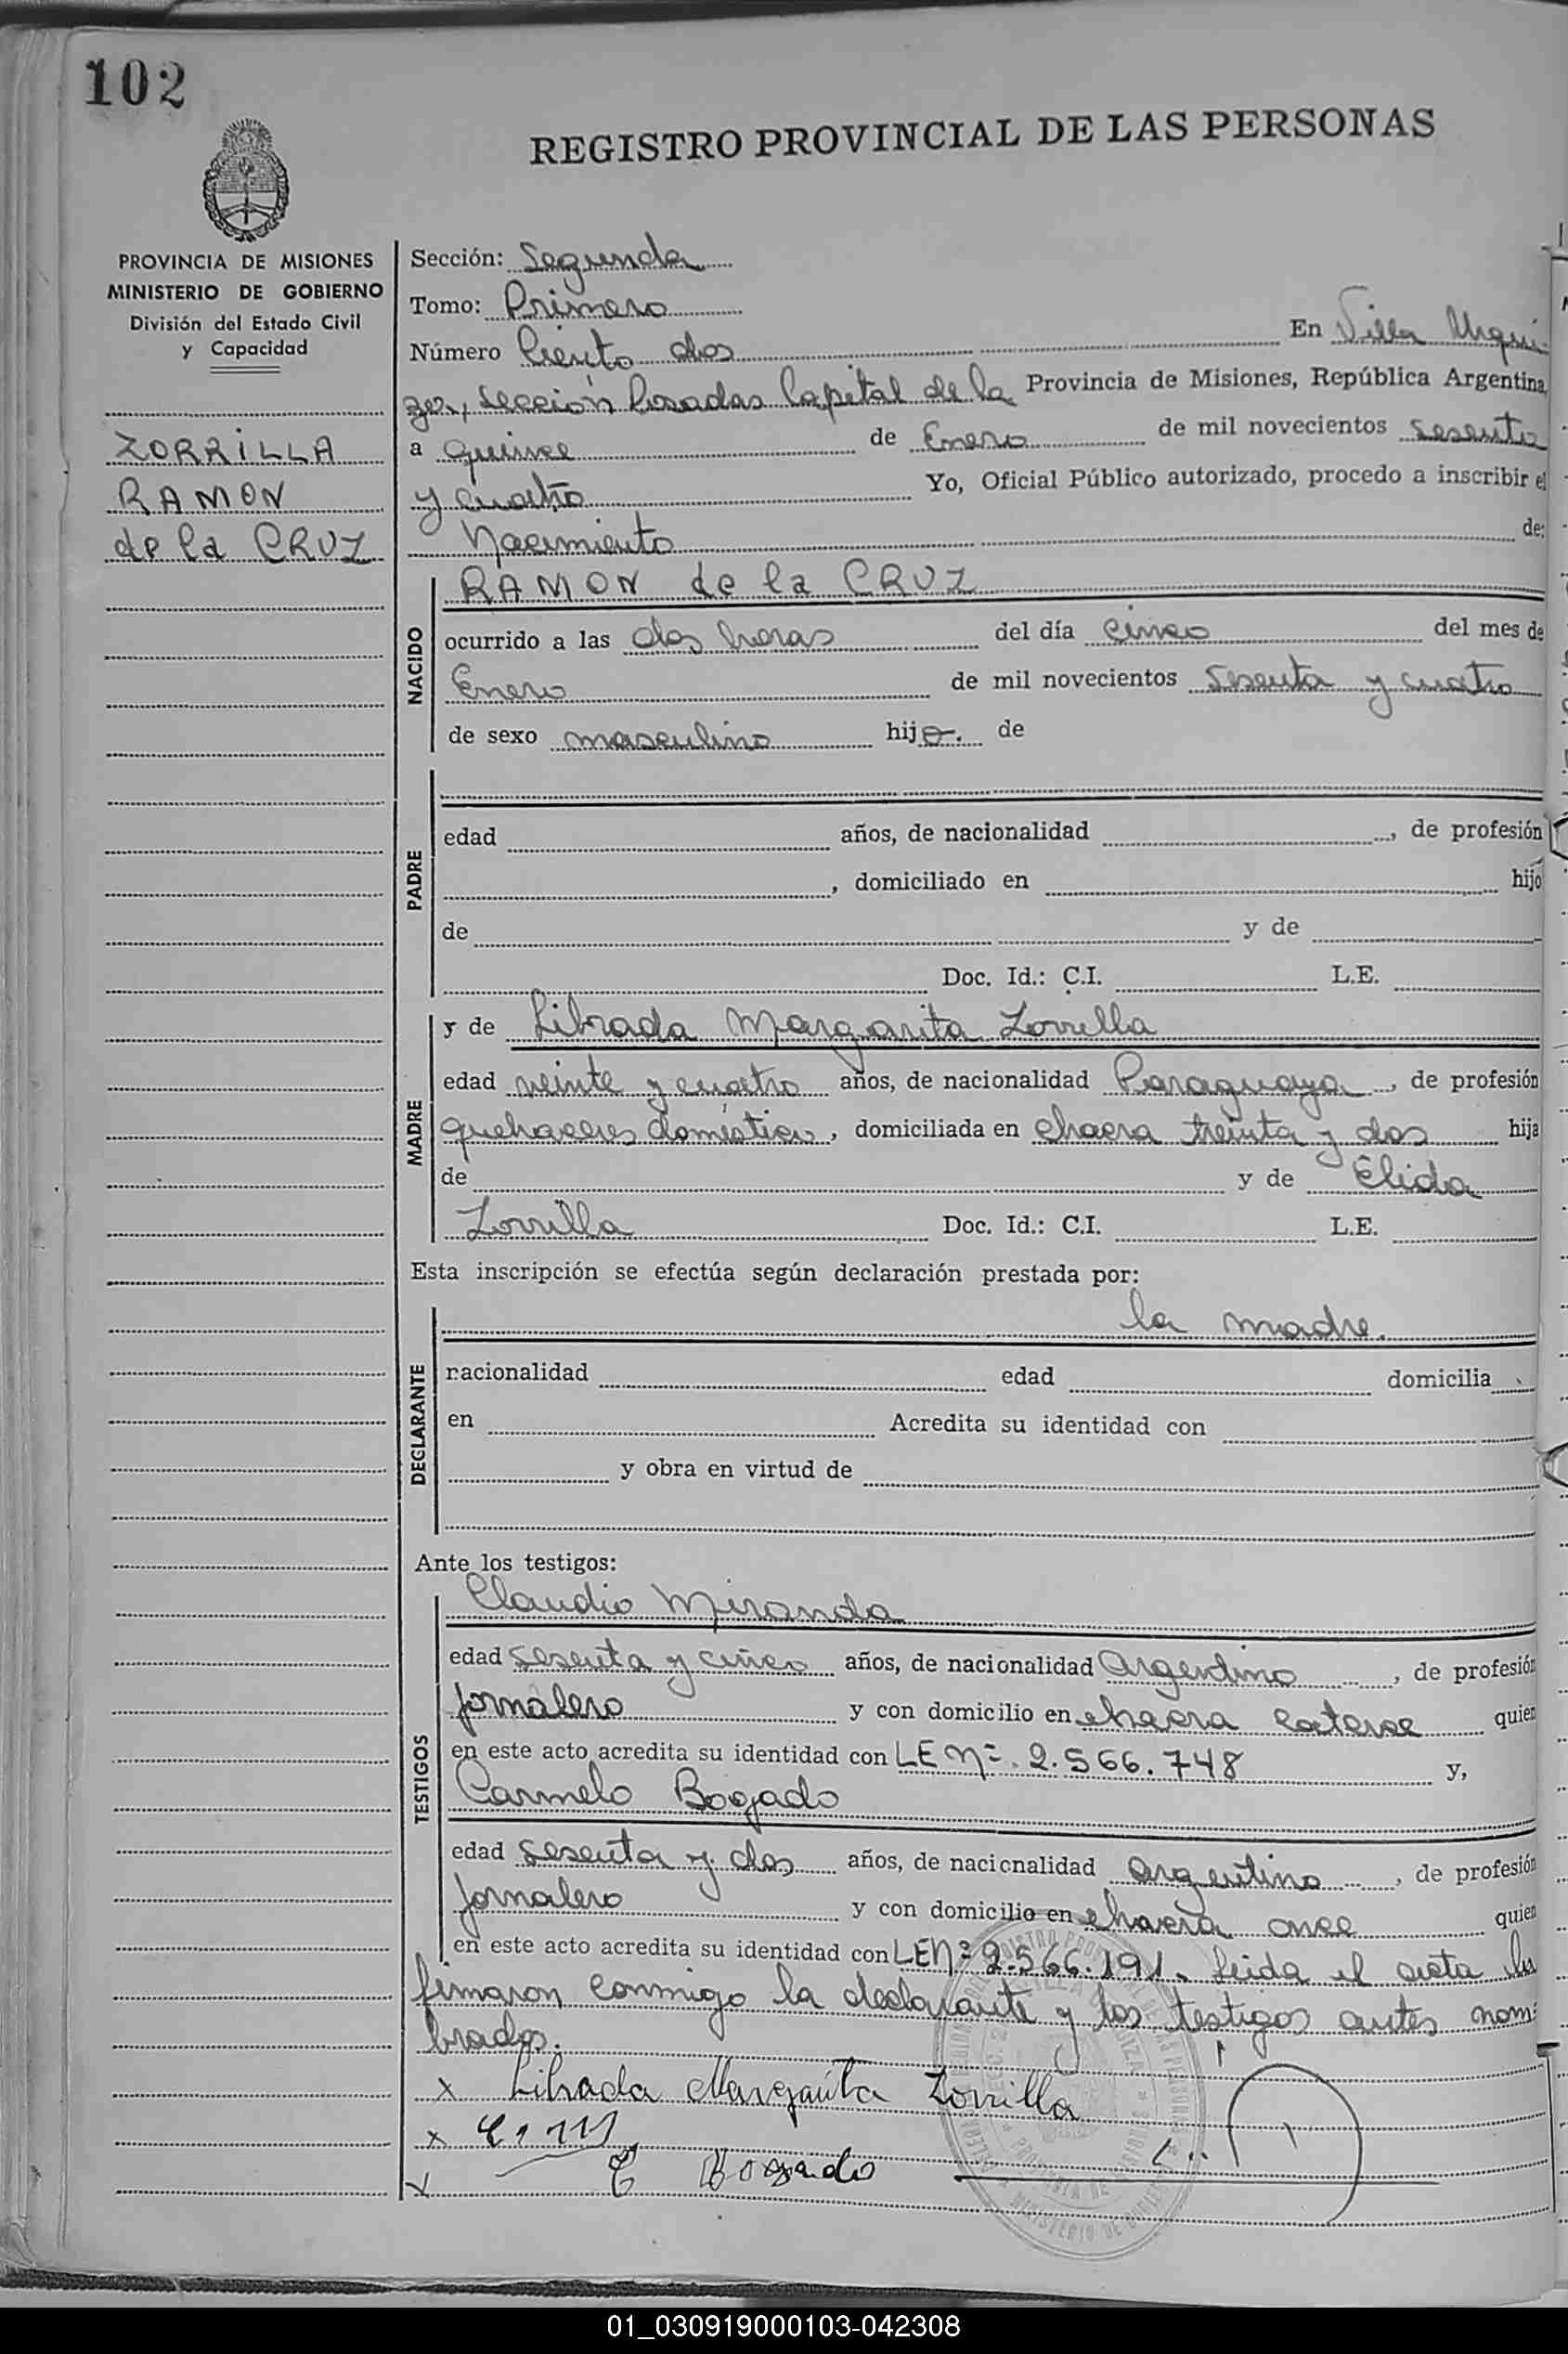 102
REGISTRO PROVINCIAL DE LAS PERSONAS
PROVINCIA DE MISIONES
MINISTERIO DE GOBIERNO
División del Estado Civil
y Capacidad
ZORRILLA
RAMON
de la CRUZ
Sección: Segunda
Tomo: Primero
Número Ciento dos En Villa Urqui
za, sección Posadas Capital de la Provincia de Misiones, República Argentina
a quince de Enero de mil novecientos sesenta
y cuatro Yo, Oficial Público autorizado, procedo a inscribir el
Nacimiento de:
NACIDO
RAMON de la CRUZ
ocurrido a las dos horas del día cinco del mes de
Enero de mil novecientos sesenta y cuatro
de sexo masculino hijo. de
PADRE
edad años, de nacionalidad , de profesión
, domiciliado en hijo
de y de
Doc. Id.: C.I. L.E.
MADRE
y de Librada Margarita Zorrilla
edad veinte y cuatro años, de nacionalidad Paraguaya, de profesión
quehaceres doméstico, domiciliada en chacra treinta y dos hija
de y de Elida
Zorrilla Doc. Id.: C.I. L.E.
Esta inscripción se efectúa según declaración prestada por:
DECLARANTE
la madre.
nacionalidad edad domicilia
en Acredita su identidad con
y obra en virtud de
Ante los testigos:
TESTIGOS
Claudio Miranda
edad sesenta y cinco años, de nacionalidad Argentino, de profesión
jornalero y con domicilio en chacra catorce quien
en este acto acredita su identidad con LE Nº. 2.566.748 y,
Carmelo Bogado
edad sesenta y dos años, de nacionalidad argentino, de profesión
jornalero y con domicilio en chacra once quien
en este acto acredita su identidad con LE Nº 2.566.191. Leida el acta la
firmaron conmigo la declarante y los testigos antes nom
brados.
x Librada Margarita Zorrilla
x
x C Bogado
01_030919000103-042308